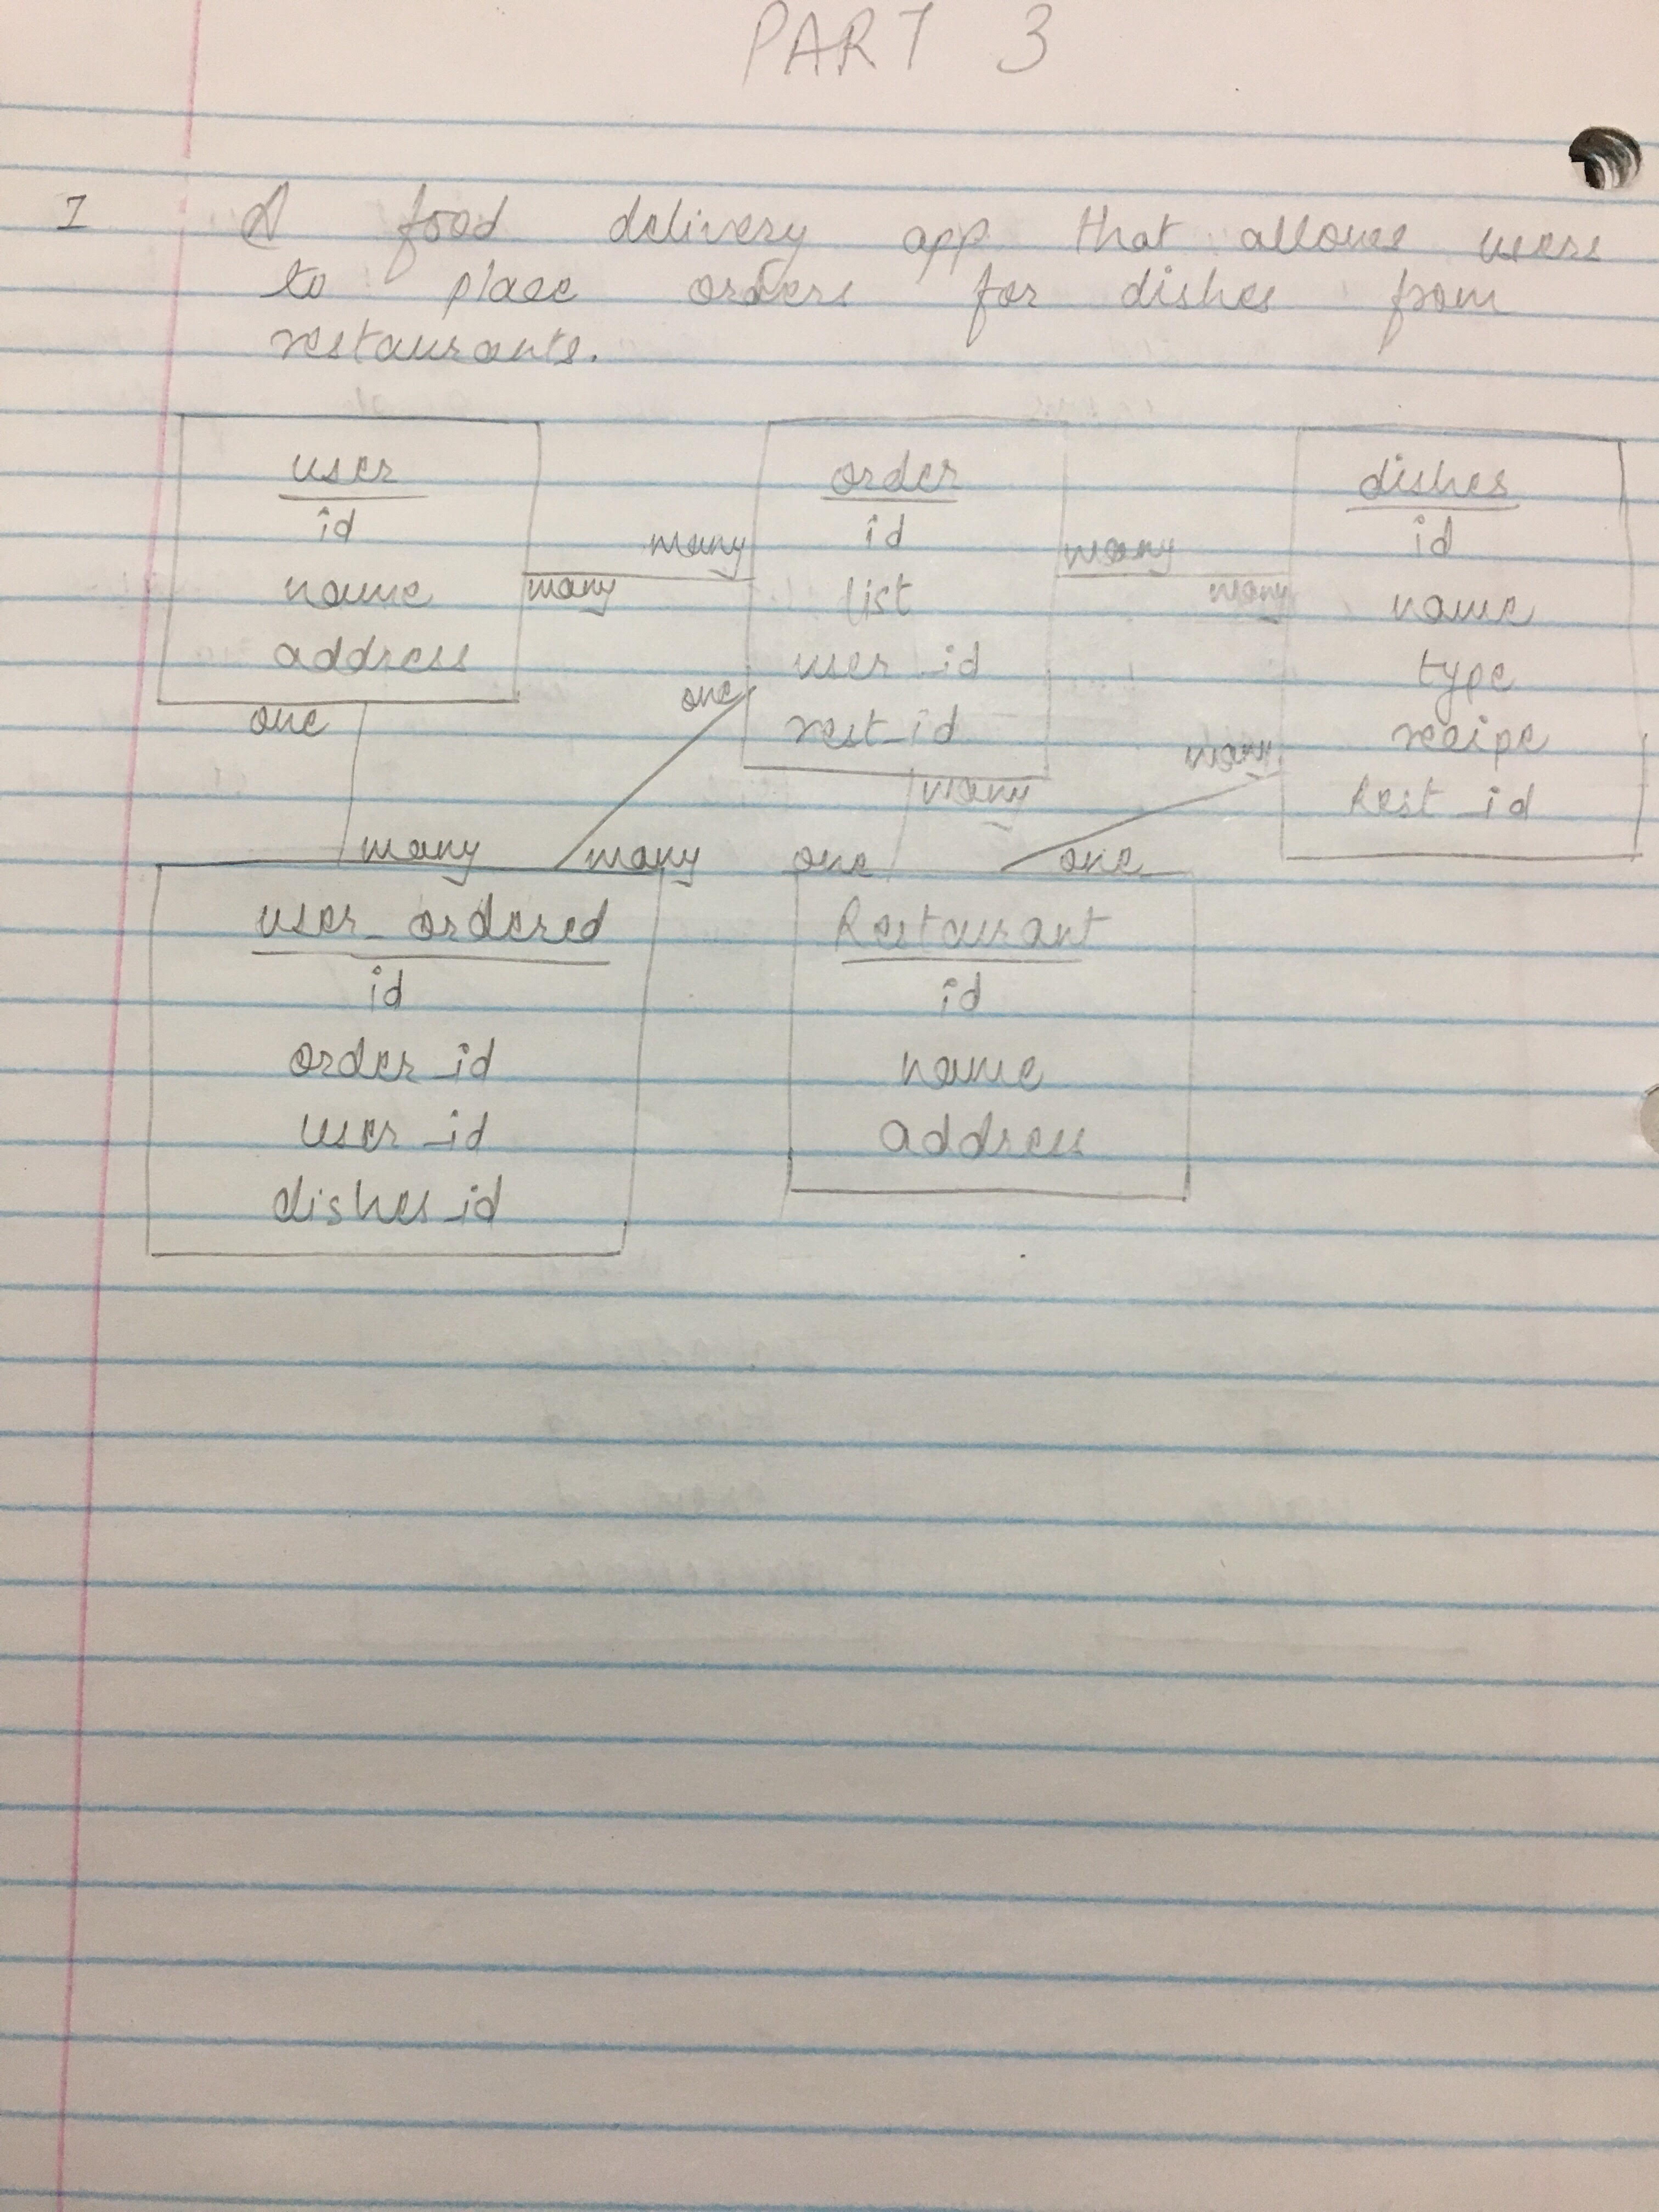 PART 3
1 A food delivery app that allows users
to place orders for dishes from
restaurants.
user
id
name
address
many
many
order
id
list
user_id
rest_id
many
many
dishes
id
name
type
recipe
Rest_id
one
many
one
many
many
one
many
one
user_ordered
id
order_id
user_id
dishes_id
Restaurant
id
name
address